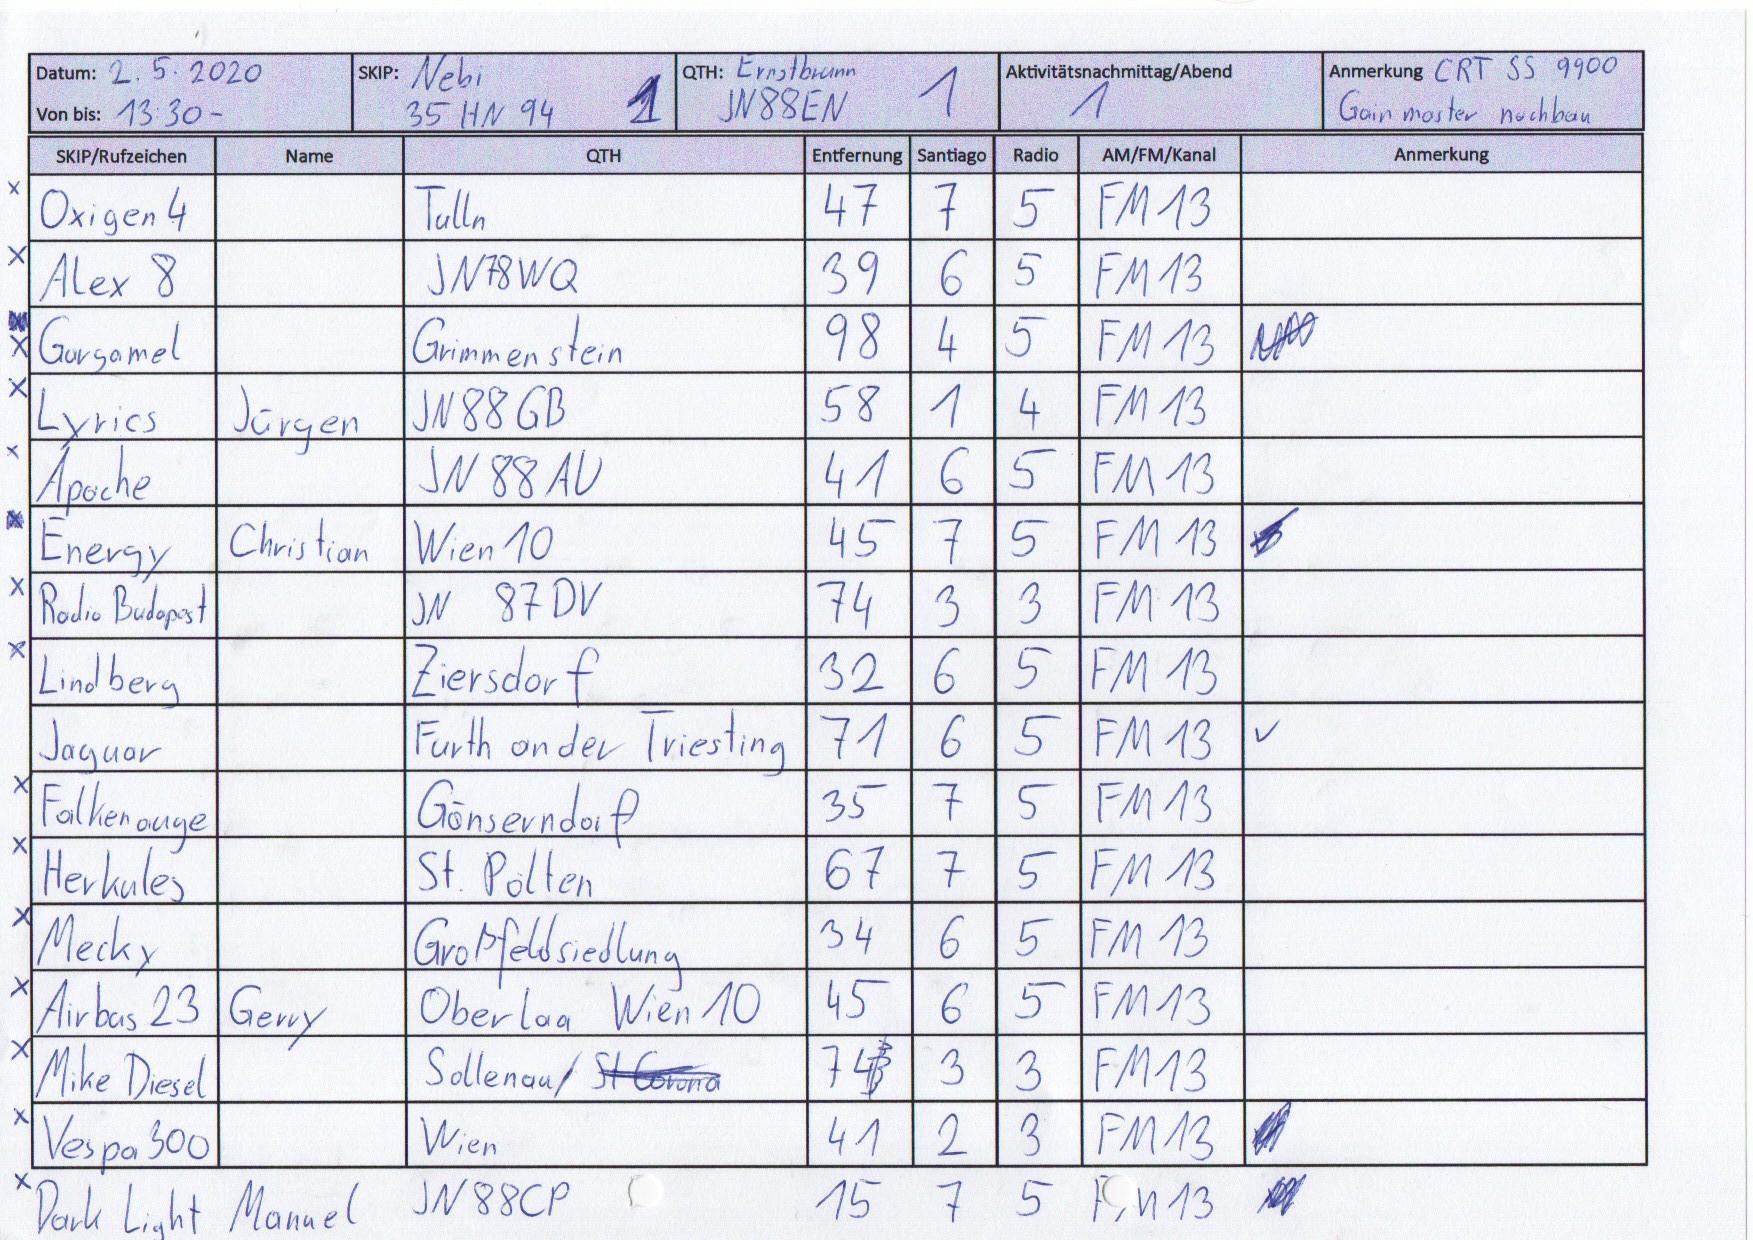 Datum: 2.5.2020 SKIP: Nebi QTH: Ernstbrunn Aktivitätsnachmittag/Abend Anmerkung CRT SS 9900
Von bis: 13:30- 35 HN 94 1 JN88EN 1 1 Gain master nachbau
SKIP/Rufzeichen Name QTH Entfernung Santiago Radio AM/FM/Kanal Anmerkung
x Oxigen 4 Tulln 47 7 5 FM 13
x Alex 8 JN78WQ 39 6 5 FM 13
x Gargamel Grimmenstein 98 4 5 FM 13
x Lyrics Jürgen JN88GB 58 1 4 FM 13
x Apache JN88AU 41 6 5 FM 13
Energy Christian Wien 10 45 7 5 FM 13
x Radio Budapest JN 87DV 74 3 3 FM 13
x Lindberg Ziersdorf 32 6 5 FM 13
Jaguar Furth an der Triesting 71 6 5 FM 13 ✓
x Falkenauge Gänserndorf 35 7 5 FM 13
x Herkules St. Pölten 67 7 5 FM 13
x Mecky Großfeldsiedlung 34 6 5 FM 13
x Airbus 23 Gerry Oberlaa Wien 10 45 6 5 FM 13
x Mike Diesel Sollenau / St Corona 74 3 3 FM 13
x Vespa 300 Wien 41 2 3 FM 13
x Dark Light Manuel JN88CP 15 7 5 FM 13